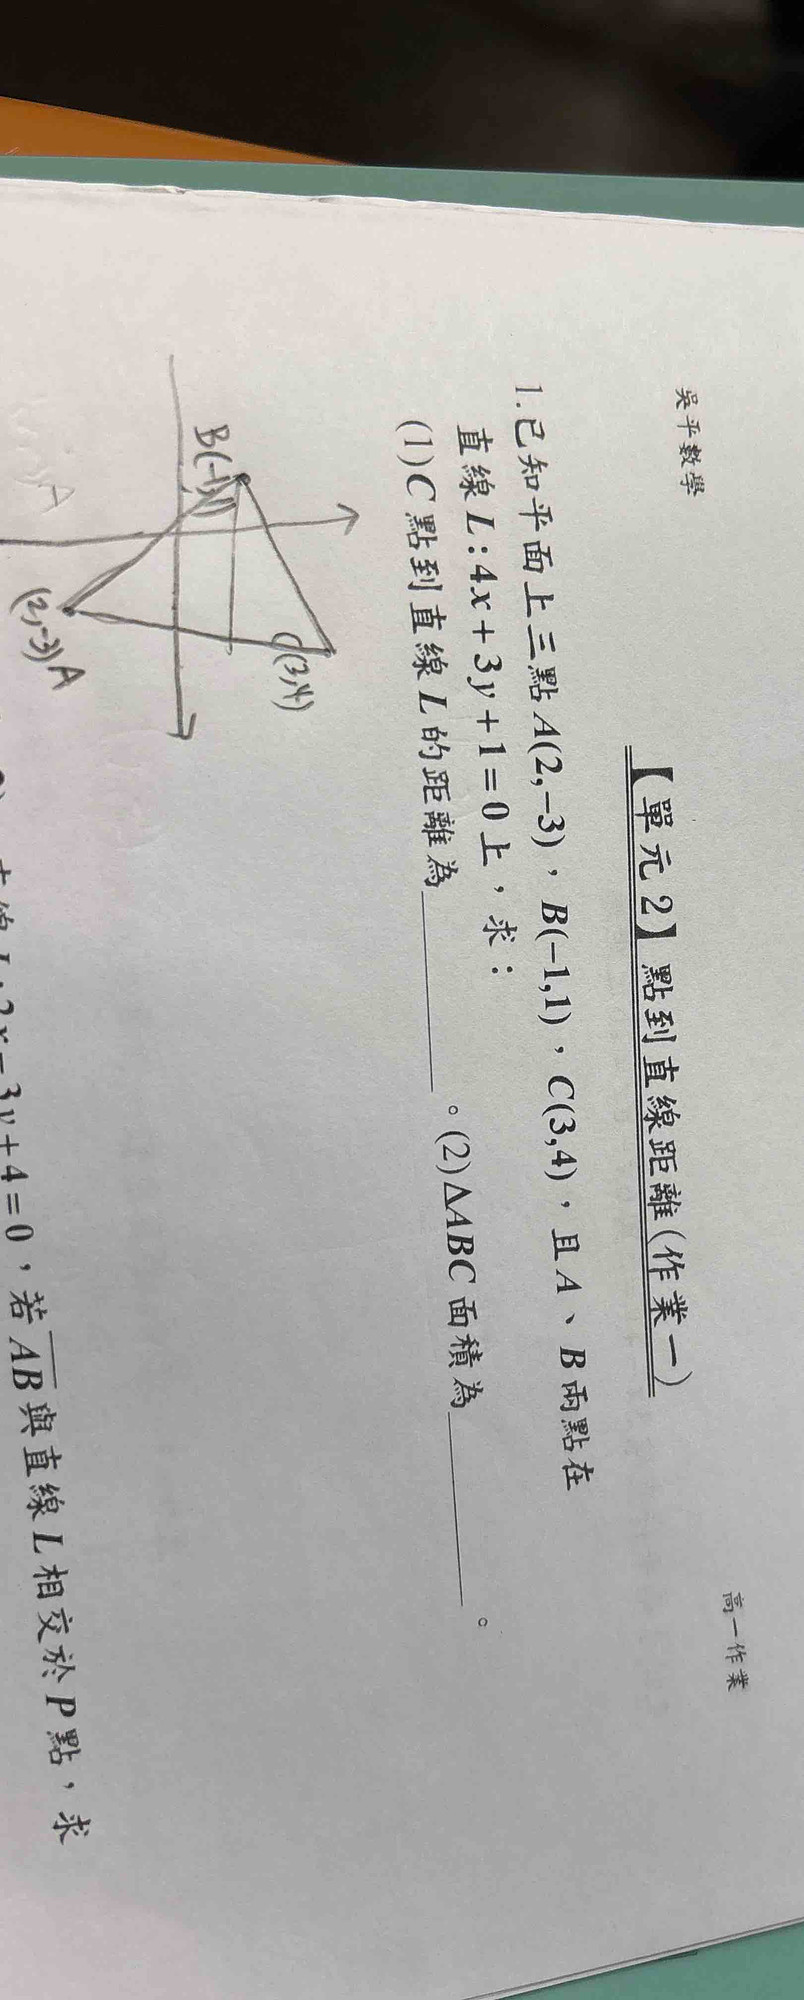 吳平數學
高一作業
【單元2】點到直線距離(作業一)
1.已知平面上三點A(2,−3),B(−1,1),C(3,4),且A、B兩點在
直線L:4x+3y+1=0上,求:
(1)C點到直線L的距離為________。(2)ΔABC面積為________。
B(-1,1)
C(3,4)
(2,-3)A
直線L:2x−3y+4=0,若AB與直線L相交於P點,求